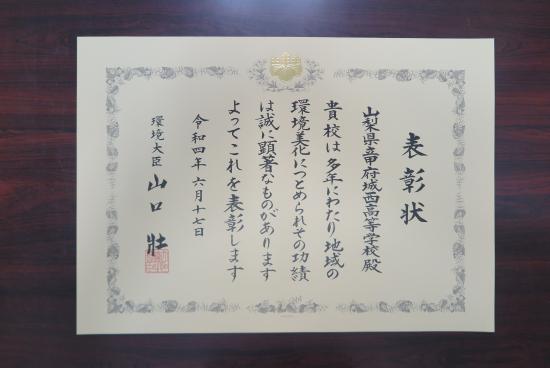 表彰状
山梨県立甲府城西高等学校殿
貴校は多年にわたり地域の
環境美化につとめられその功績
は誠に顕著なものがあります
よってこれを表彰します
令和四年六月十七日
環境大臣 山口 壯